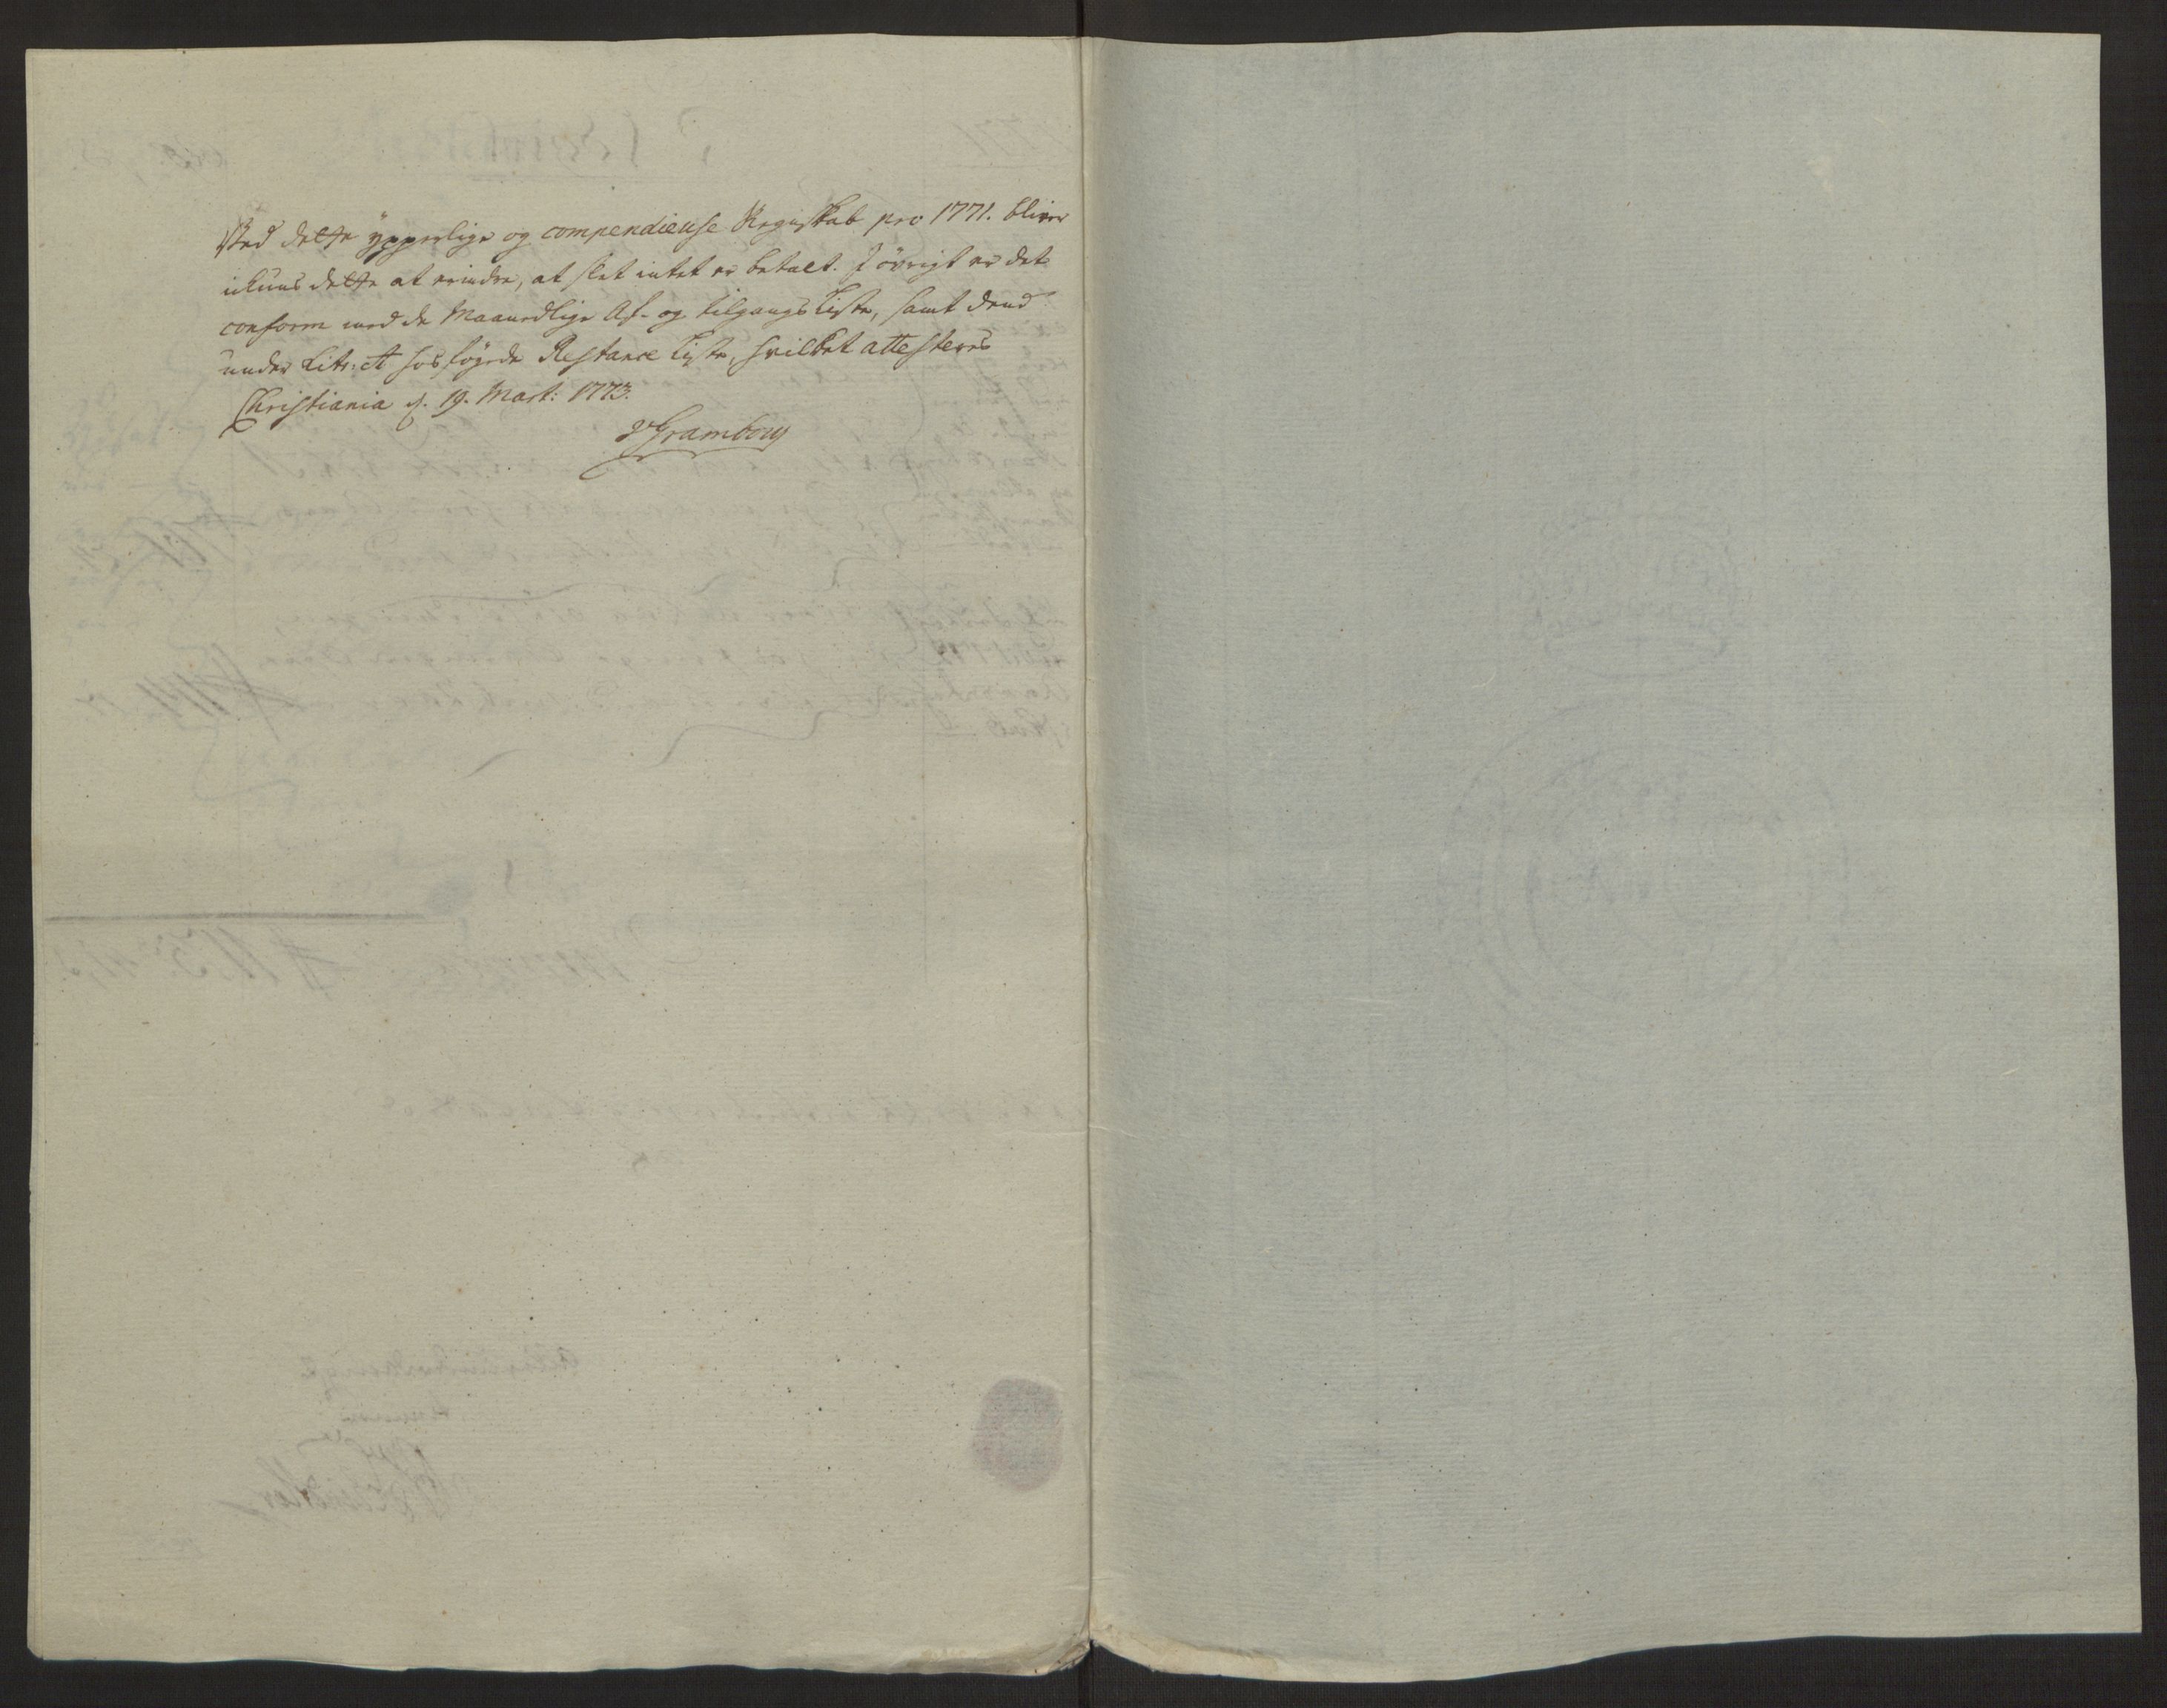 Ved dette ypperlige og compendieuse Regnskab pro 1771. bliver
ikuns dette at erindre, at slet intet er betalt. I övrigt er det
conform med de Maanedlige Af- og tilgangs Liste, samt dend
under Litr: A hosföyede Restance Liste, hvilket attesteres
Christiania d. 19. Mart: 1773.
Grambow